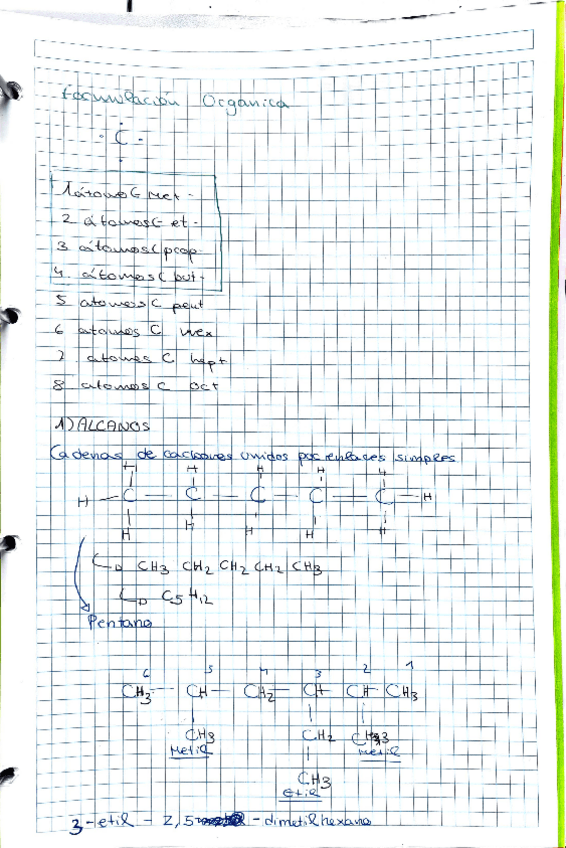 Formulación Orgánica
C
1 átomo C Met-
2 átomos C et-
3 átomos C prop-
4 átomos C but-
5 atomos C pent
6 atomos C hex
7 atomos C hept
8 atomos C oct
1) ALCANOS
Cadenas de carbonos unidos por enlaces simples
H H H H H
H — C — C — C — C — C — H
H H H H H
CH3 CH2 CH2 CH2 CH3
C5H12
Pentano
6 5 4 3 2 1
CH3 — CH — CH2 — CH — CH — CH3
CH3 CH2 CH3
Metil Metil
CH3
etil
3-etil - 2,5 - dimetilhexano